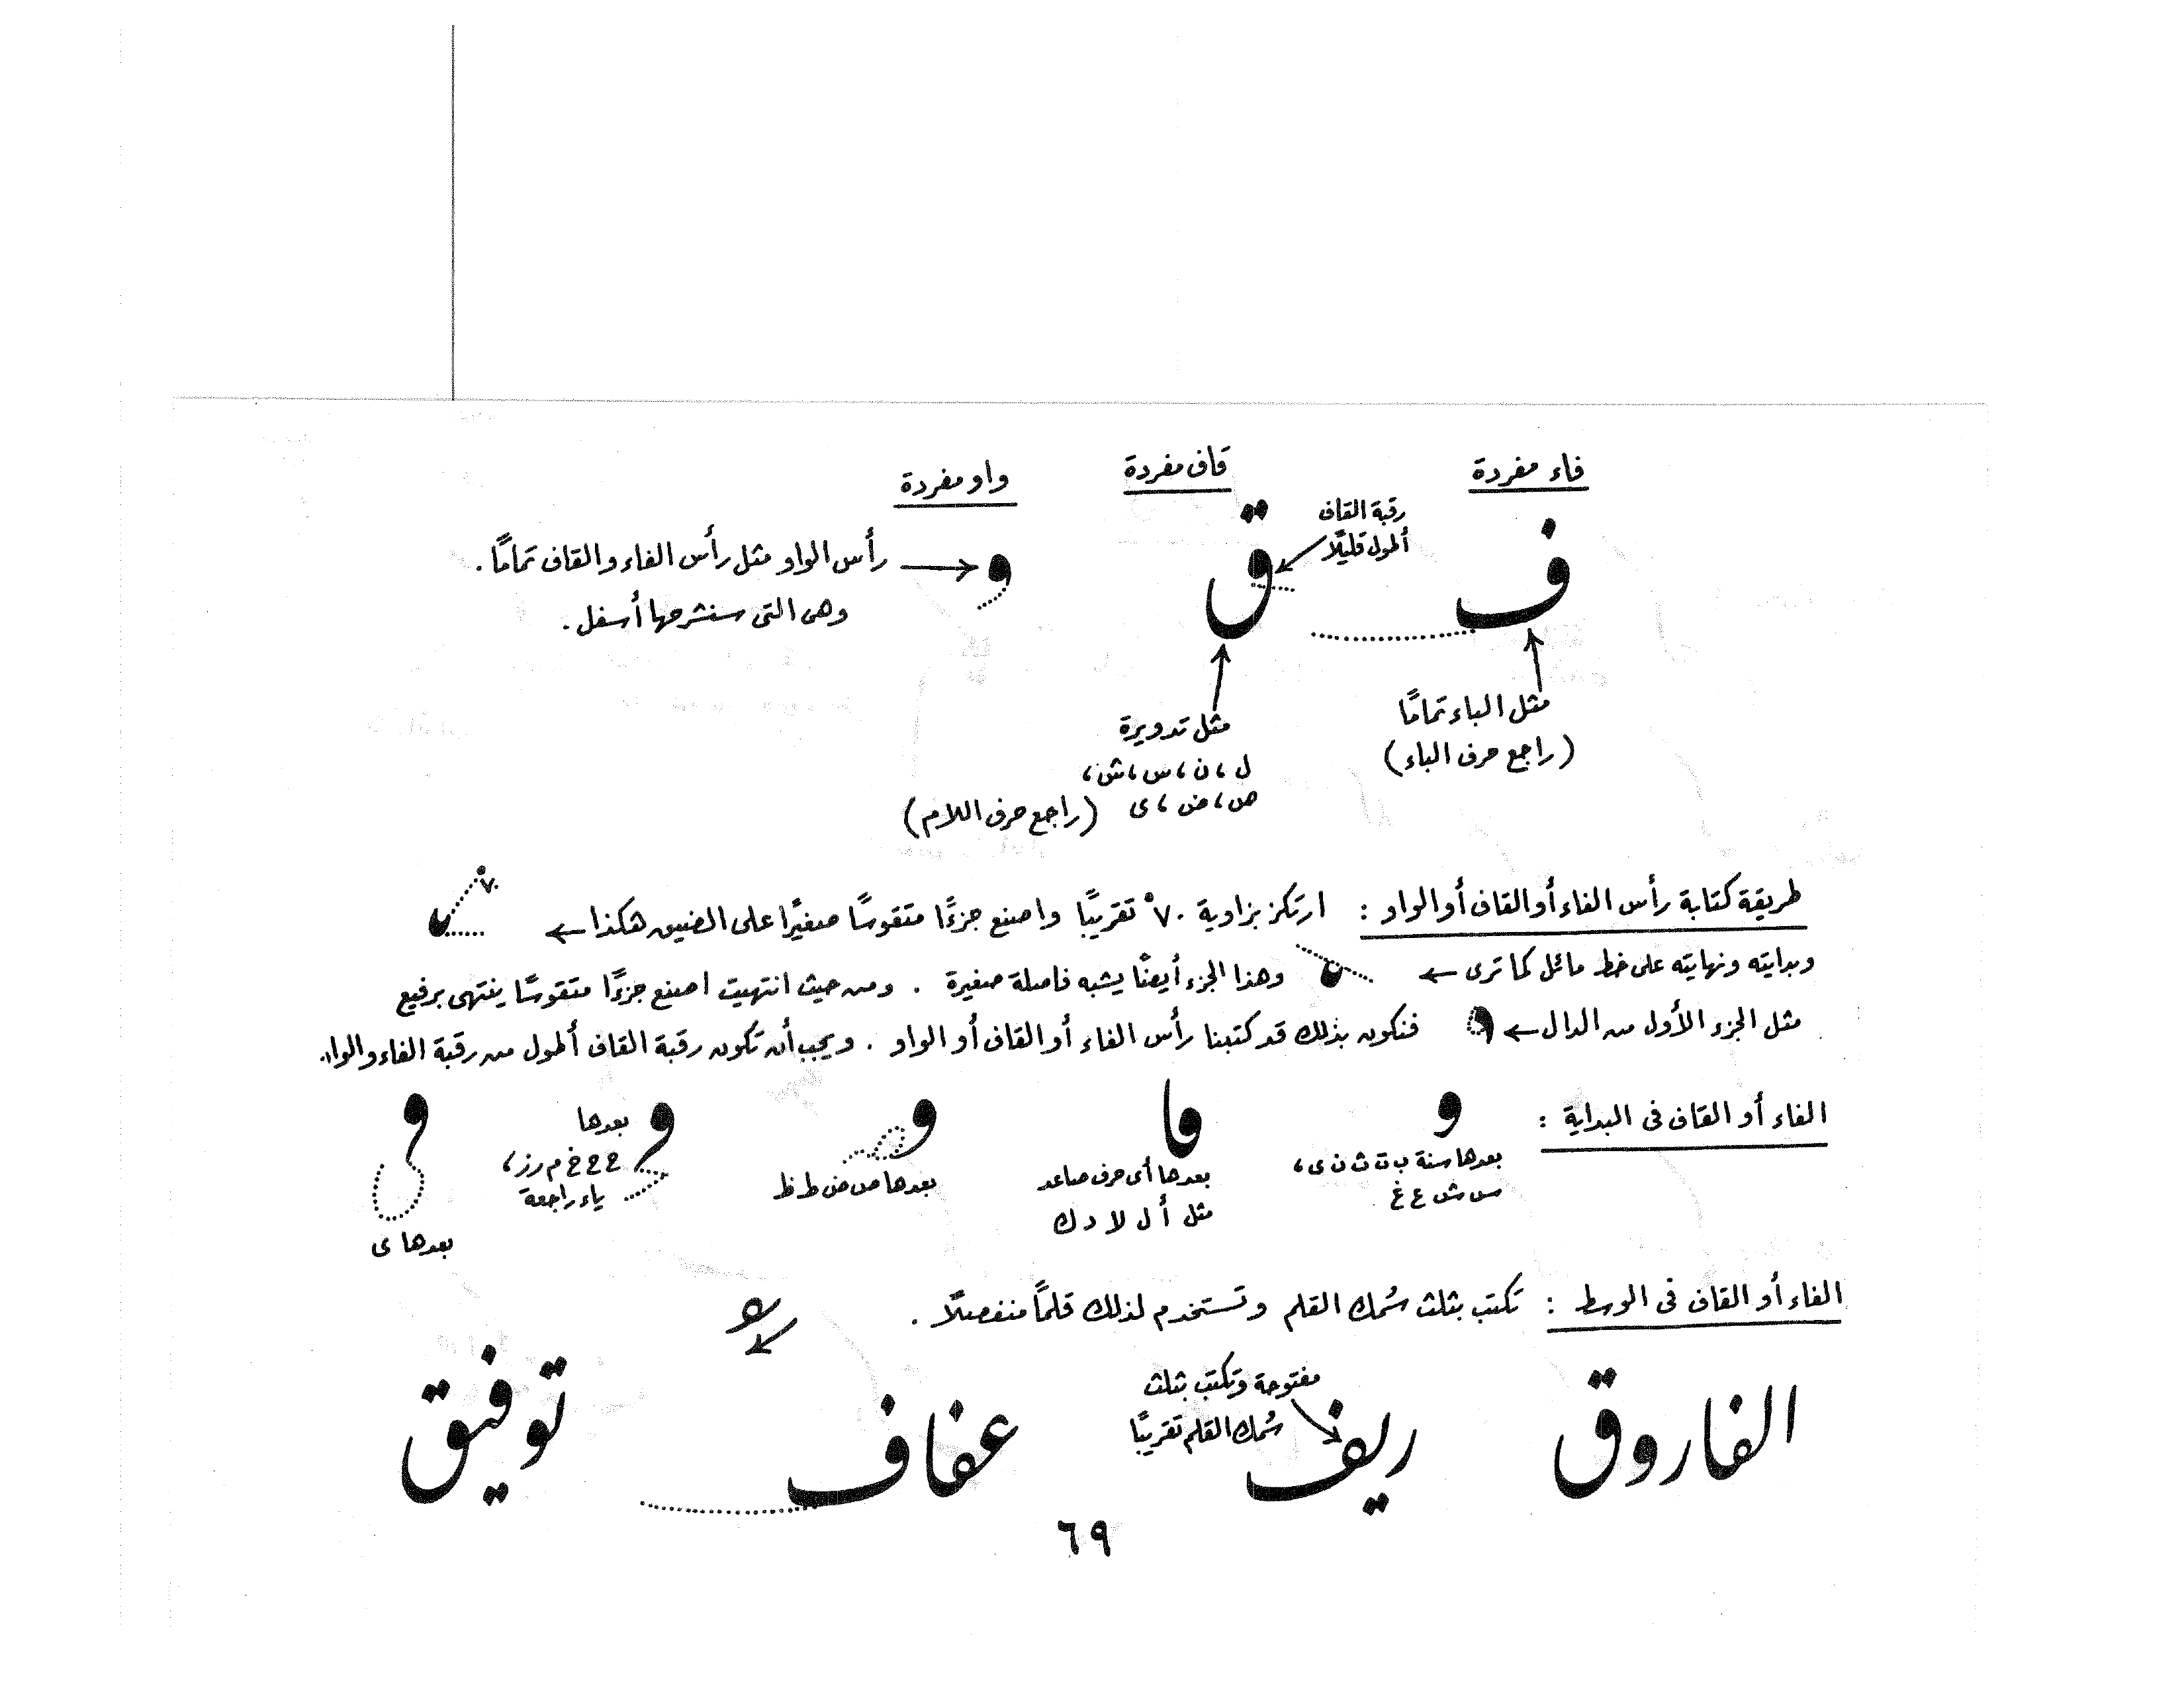 فاء مفردة
قاف مفردة
واو مفردة
ف
رقبة القاف
أطول قليلًا
ق
و
رأس الواو مثل رأس الفاء والقاف تمامًا .
وهى التى سنشرحها أسفل .
مثل الباء تمامًا
(راجع حرف الباء)
مثل تدويرة
ل ، ن ، س ، ش ،
ص ، ض ، ى (راجع حرف اللام)
طريقة كتابة رأس الفاء أو القاف أو الواو : ارتكز بزاوية ٧٠° تقريبًا واصنع جزءًا متقوسًا صغيرًا على اليمين هكذا ← ٧٠°
وبدايته ونهايته على خط مائل كما ترى ← وهذا الجزء أيضًا يشبه فاصلة صغيرة . ومن حيث انتهيت اصنع جزءًا متقوسًا ينتهى برفيع
مثل الجزء الأول من الدال ← فنكون بذلك قد كتبنا رأس الفاء أو القاف أو الواو . ويجب أن تكون رقبة القاف أطول من رقبة الفاء والواو.
الفاء أو القاف فى البداية :
بعدها سنة ب ت ث ن ى ،
س ش ع غ
بعدها أى حرف صاعد
مثل أ ل لا د ك
بعدها ص ض ط ظ
بعدها
ح ج خ م ر ز ،
ياء راجعة
بعدها ى
الفاء أو القاف فى الوسط : تكتب بثلث سُمك القلم وتستخدم لذلك قلمًا منفصلًا .
الفاروق
مفتوحة وتكتب بثلث
سُمك القلم تقريبًا
ريف
عفاف
توفيق
٦٩